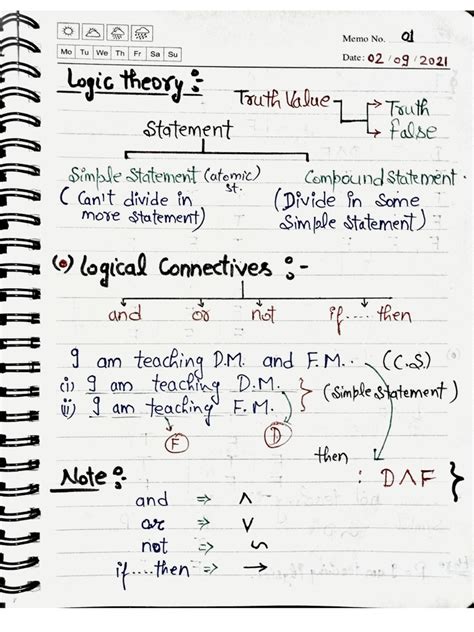 Memo No. 01
Mo Tu We Th Fr Sa Su
Date: 02/09/2021
Logic theory :-
Truth Value → Truth
→ false
Statement
Simple Statement (atomic) st.
Compound Statement.
( Can't divide in more statement)
(Divide in some Simple Statement)
(o) Logical Connectives :-
and or not if.... then
I am teaching D.M. and F.M. . (C.S.)
(i) I am teaching D.M.
(Simple Statement)
ii) I am teaching F.M.
F D
then : D∧F }
Note :-
and ⇒ ∧
or ⇒ ∨
not ⇒ ∽
if....then ⇒ →